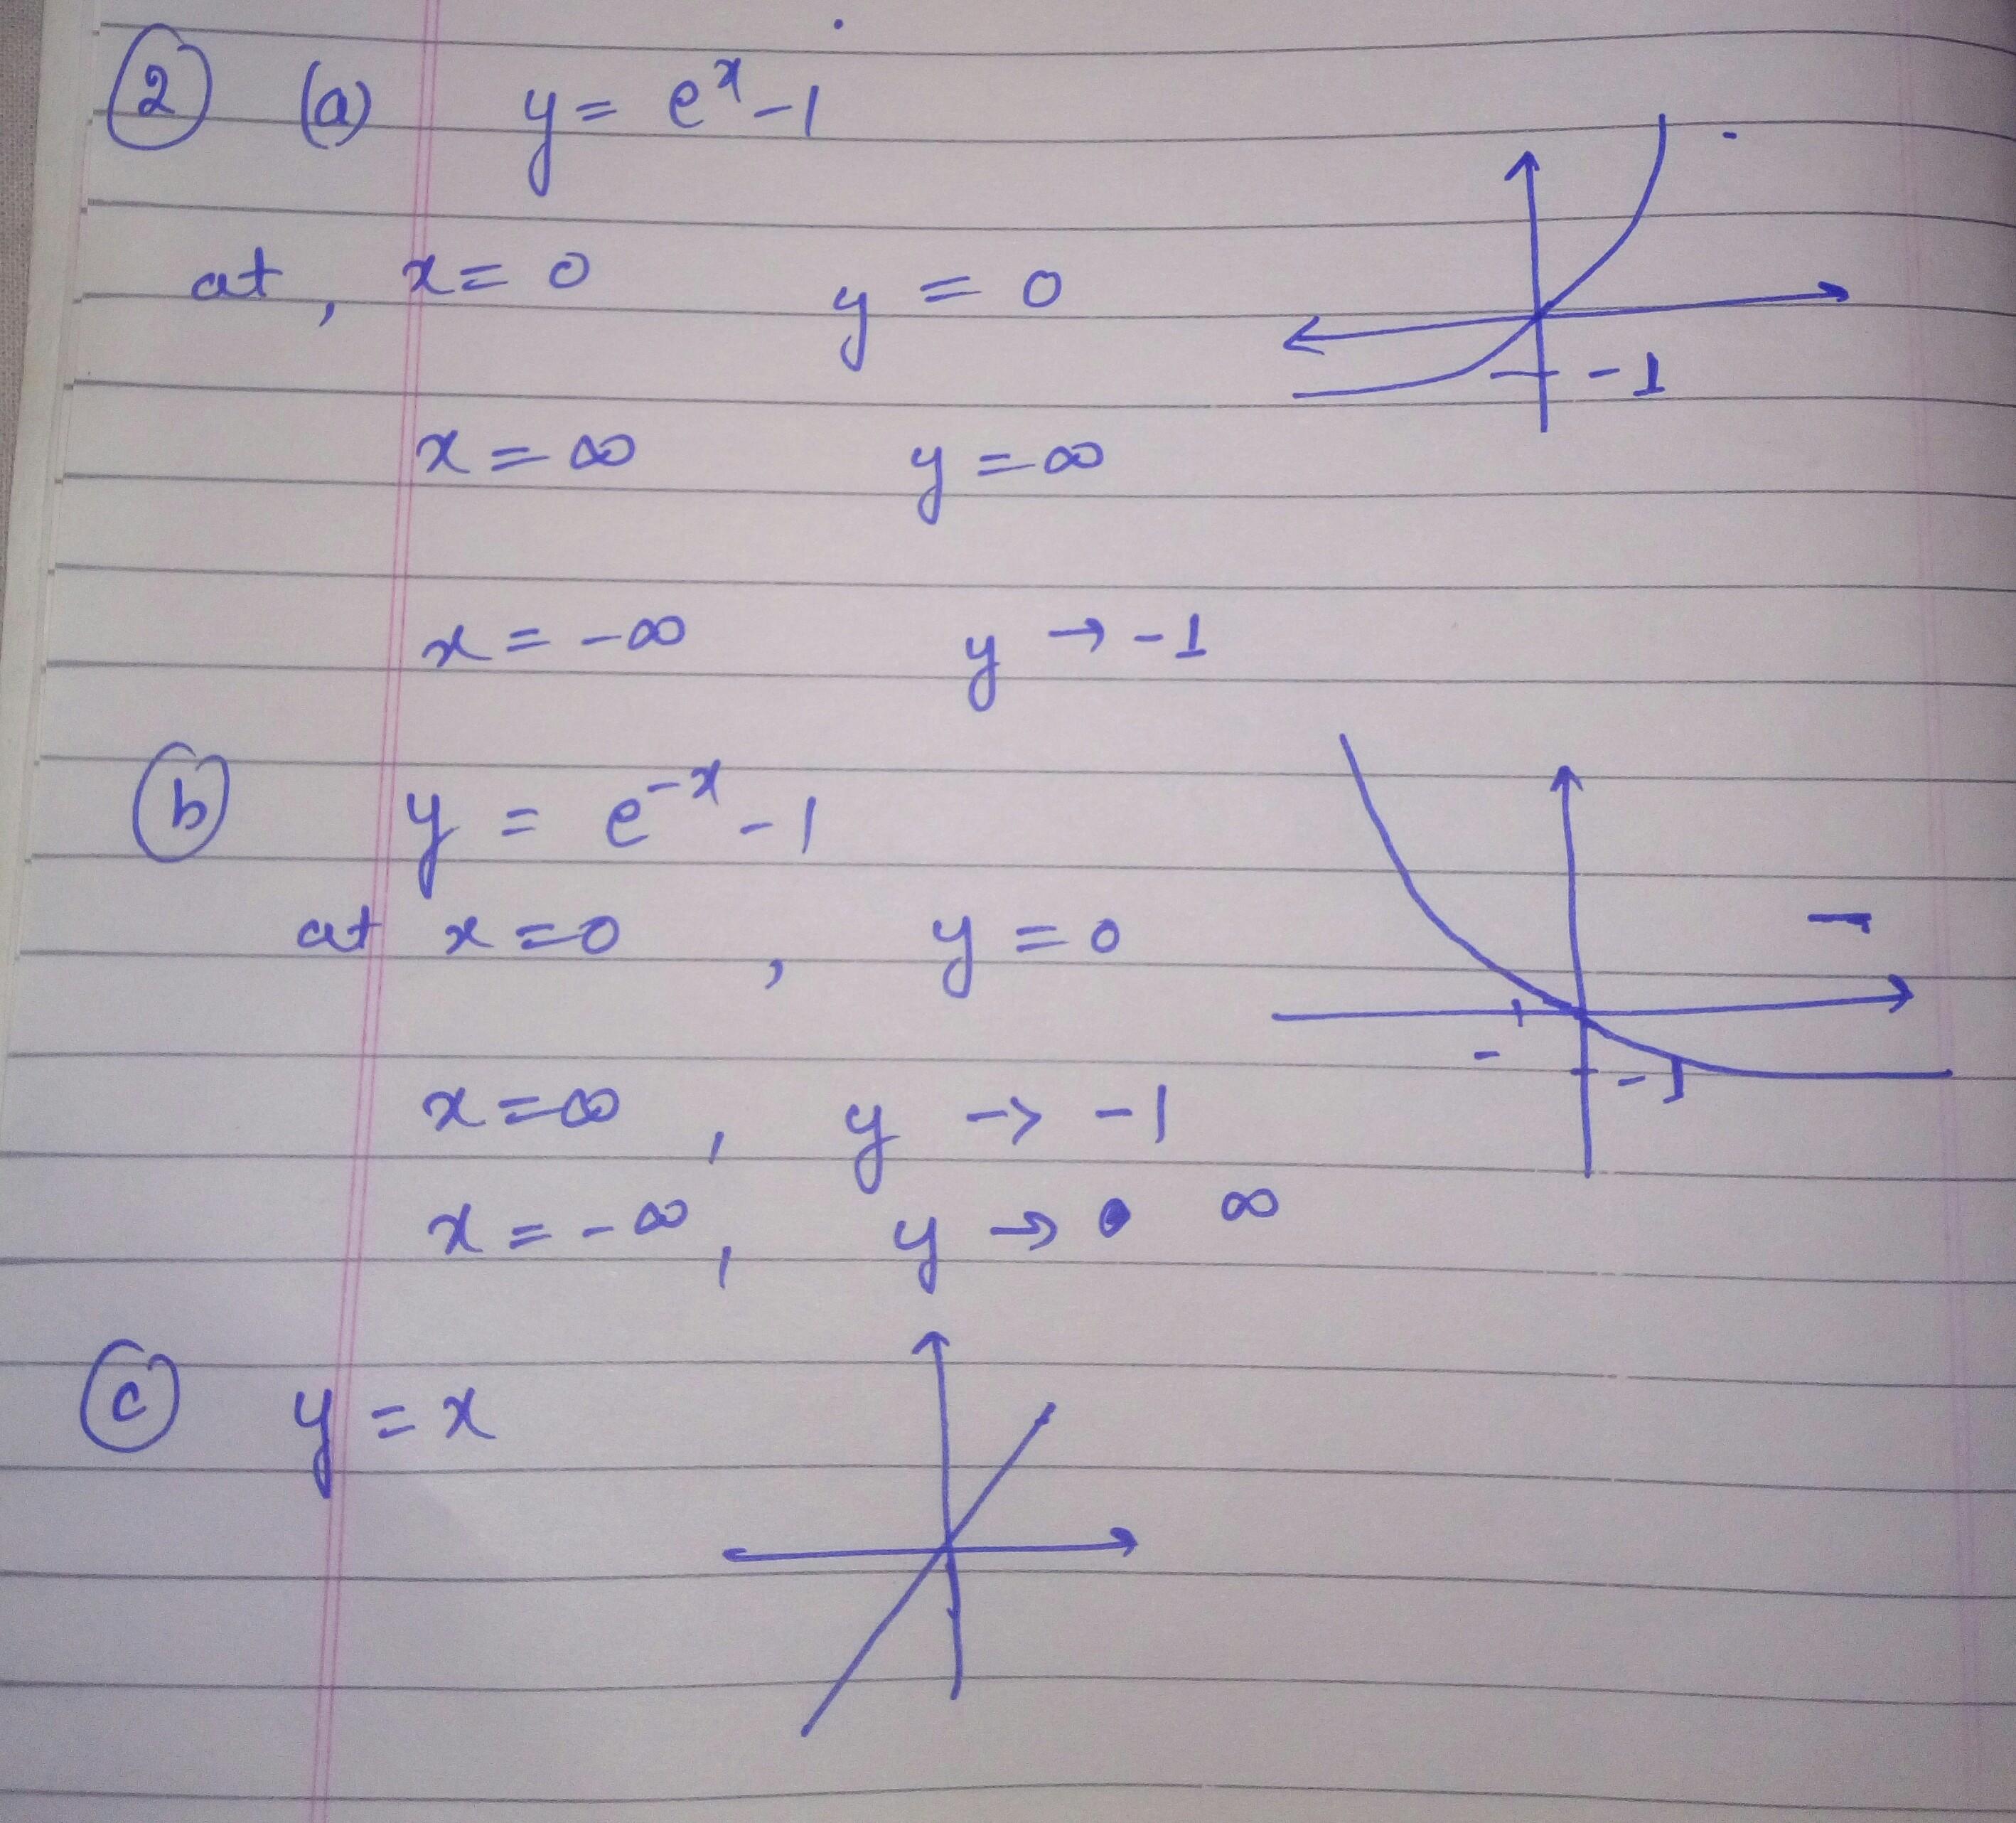 2 (a) y = eˣ - 1
at, x = 0 y = 0
-1
x = ∞ y = ∞
x = -∞ y → -1
b y = e⁻ˣ - 1
at x = 0, y = 0
-1
x = ∞, y → -1
x = -∞, y → ∞
c y = x